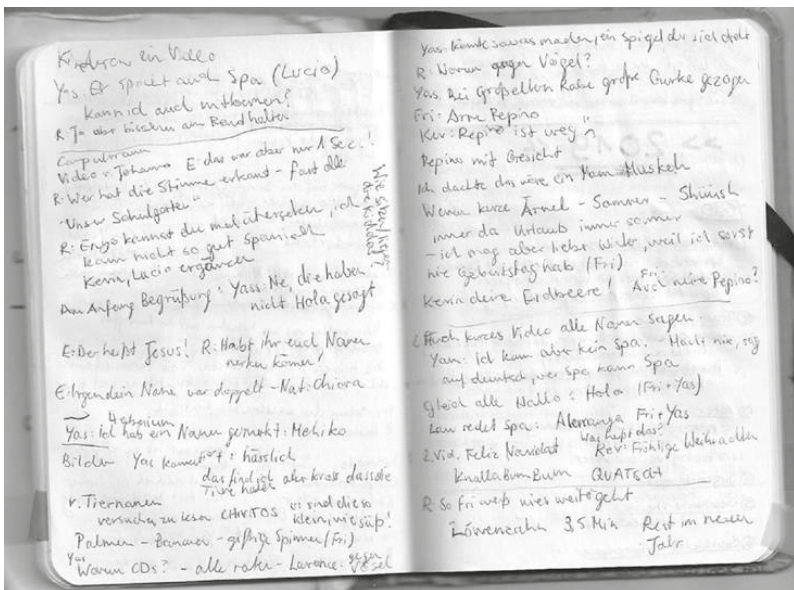 Yas: Er spricht auch Spa (Lucio)
kann id auch mitlernen?
R: Ja aber bisschen am Rand halten
Video v. Johanna E: das war aber nur 1 Sek.!
R: Wer hat die Stimme erkannt - fast alle
"Unser Schulgarten"
R: Enzo kannst du mal übersetzen, ich
kann nicht so gut Spanisch
Kevin, Lucio ergänzen
Am Anfang Begrüßung: Yass: Ne, die haben
nicht Hola gesagt
E: Der heißt Jesus! R: Habt ihr euch Namen
merken können?
E: Irgendein Name war doppelt - Nat: Chiara
Yas: Ich hab ein Namen gemerkt: Mehiko
Bilder Yas kommentiert: hässlich
das find ich aber krass dass die
Tiere haben
v. Tiernamen
versuchen zu lesen CHIVITOS oi sind die so
klein, wie süß!
Palmen - Bananen - giftige Spinnen (Fri)
Yas
Warum CDs? - alle raten - Lavence: gegen
Vögel
Yas: könnte sowas machen, ein Spiegel der sich dreht
R: Warum gegen Vögel?
Yas: Bei Großeltern Rabe große Gurke gezogen
Fri: Arme Pepino
Kev: Pepino ist weg
Pepino mit Gesicht
Ich dachte das wäre ein Yam Muskeln
Warum kurze Ärmel - Sommer -
immer da Urlaub immer Sommer
- ich mag aber lieber Winter, weil ich sonst
nie Geburtstag hab (Fri)
Kevin deine Erdbeere! Fri: Auch meine Pepino?
kurzes Video alle Namen sagen -
Yam: Ich kann aber kein Spa. - Macht nix, sag
auf deutsch, wer Spa kann Spa
Gleich alle Hallo: Hola (Fri + Yas)
Lau redet Spa: Alemanya Fri + Yas
Was heißt das?
2. Vid. Feliz Navidad Kev: Fröhliche Weihnachten
KnallaBumBum QUATSCH
R: So Fri weiß wies weitergeht
Löwenzahn 35 Min Rest im neuen
Jahr